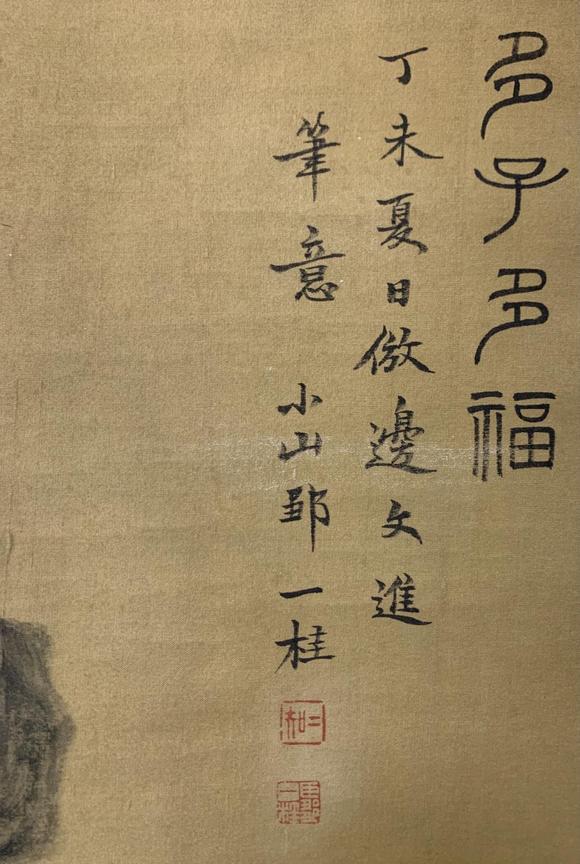 多子多福
丁未夏日倣邊文進
筆意 小山鄒一桂